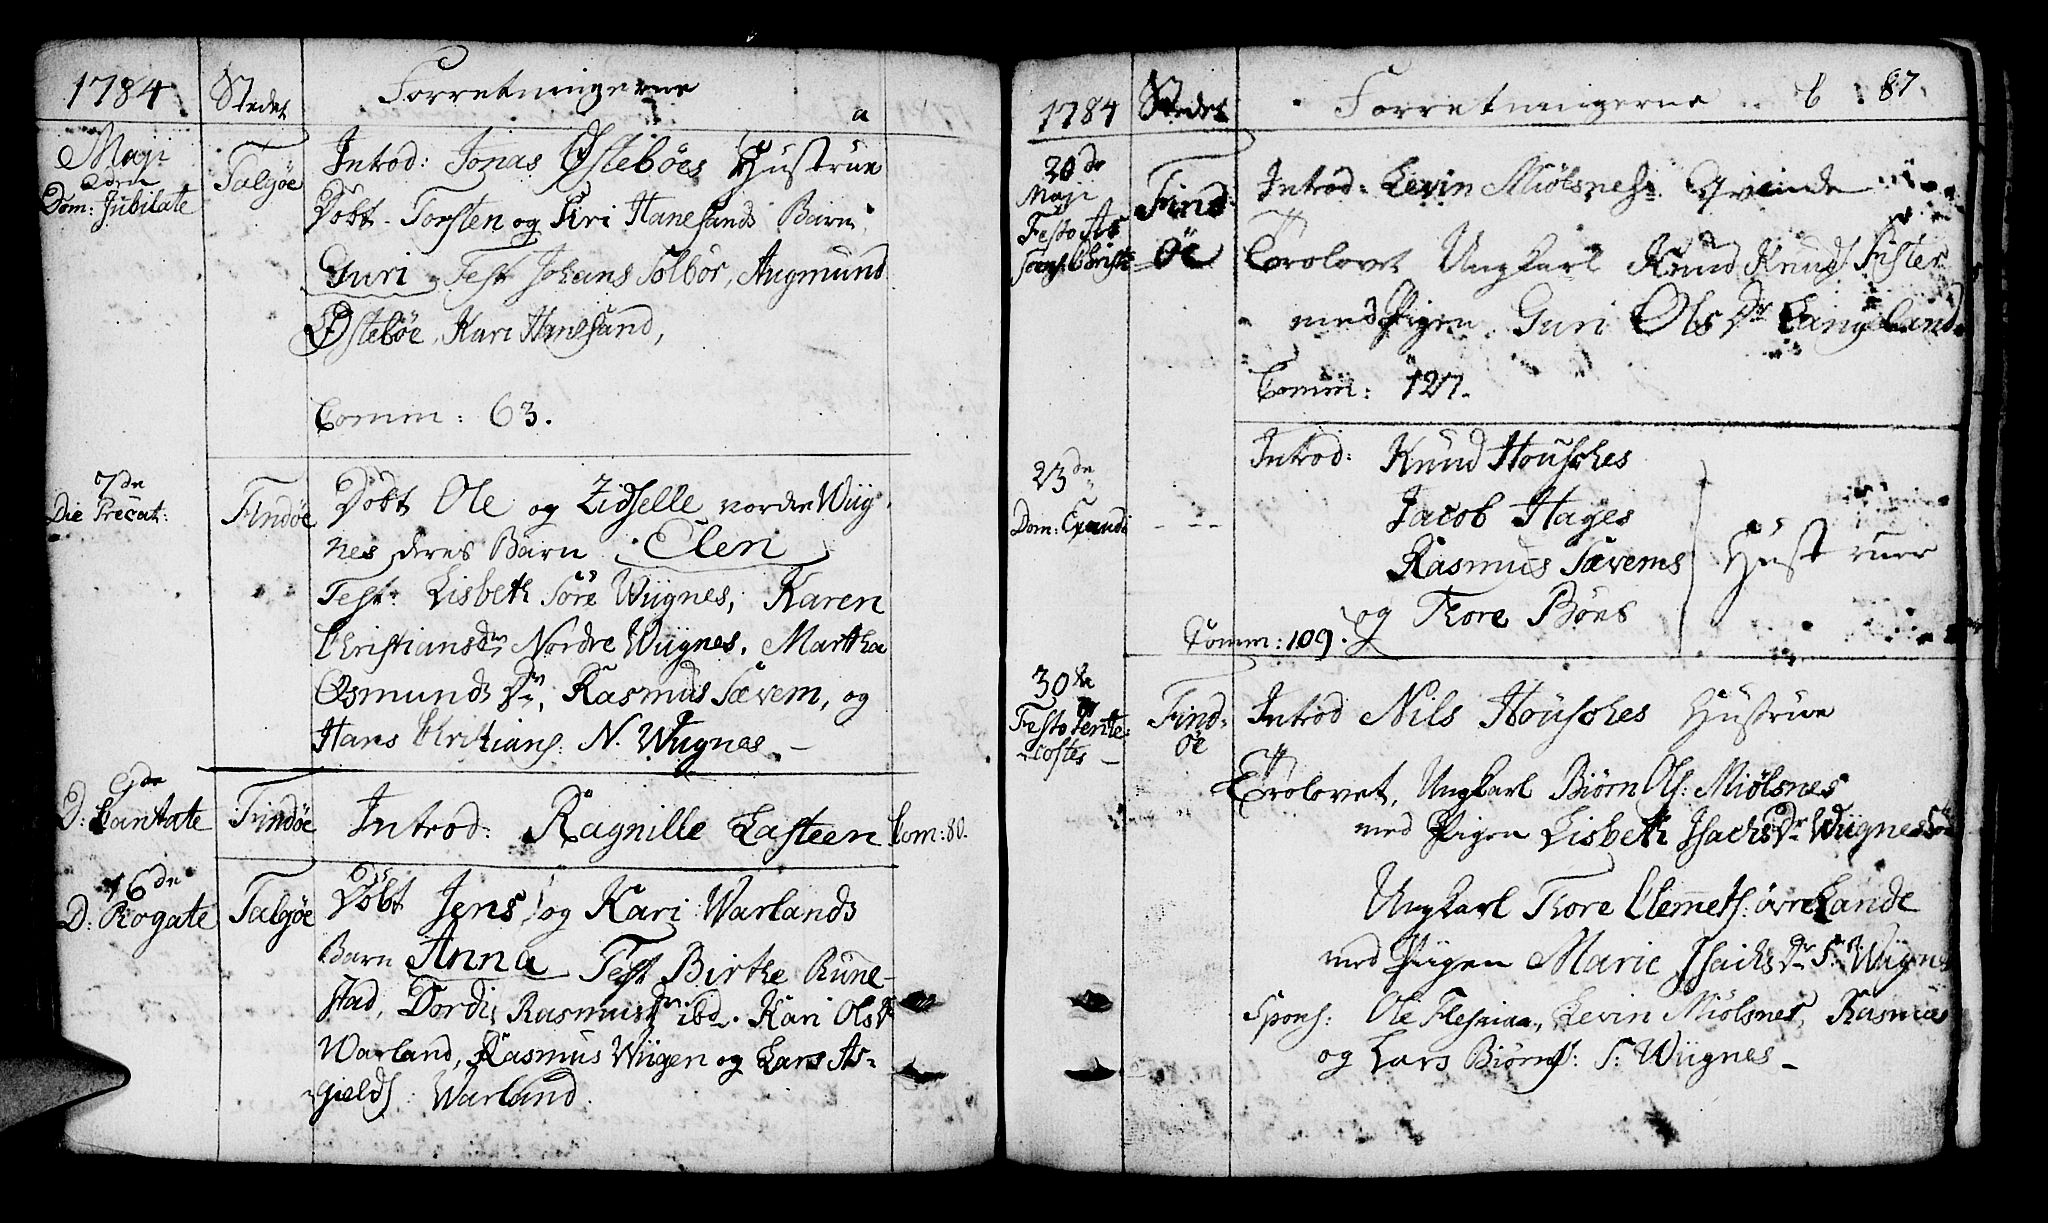 1784 Stedet Forretningerne a
Maji
2den
Dom: Jubilate
Talgøe
Introd: Jonas Østebøes Hustrue
Døbt - Torsten og Siri Hanesands Barn
Guri, Test Johans Solbør, Augmund
Østebøe, Kari Hanesand,
Comm: 63.
7de
Die Precat:
Findøe
Døbt Ole og Zidselle nordre Wiig-
nes deres Barn Elen
Test: Lisbeth Søre Wiignes, Karen
Christiansdr Nordre Wiignes, Martha
Osmunds Dr, Rasmus Sævem, og
Hans Christians: N. Wiignes -
9de
D: Cantate
Findøe
Introd: Ragnille Lasteen Com: 80.
16de
D: Rogate
Talgøe
Døbt Jens og Kari Warlands
Barn Anna Test Birthe Rune-
stad, Dordis Rasmusdr ibd. Kari Ols Dr
Warland, Rasmus Wiigen og Lars As-
gields: Warland.
1784 Stedet Forretningerne b 87
20de
Maji
Festo As
Christi
Find
øe
Introd: Levin Miølsnes Qvinde
Trolovet Ungkarl Knud Knuds Fister
med Pigen Guri Ols Dr Langeland
Comm: 127.
23de
Dom: Exaudi
- - -
Introd: Knud Houskes
Jacob Hages
Rasmus Sævems
og Thore Bøes
Hustruer
Comm: 109.
30te
Festo Pente-
costes -
Find-
øe
Introd Nils Houskes Hustrue
Trolovet, Ungkarl Biørn Ols: Miølsnes
med Pigen Lisbeth Isachs Dr Wiignes
Ungkarl Thore Clemets: øvre Lande
med Pigen Marie Isachs Dr S: Wiignes
Spons: Ole Levin Miølsnes, Rasmus
og Lars Biørns: S: Wiignes -